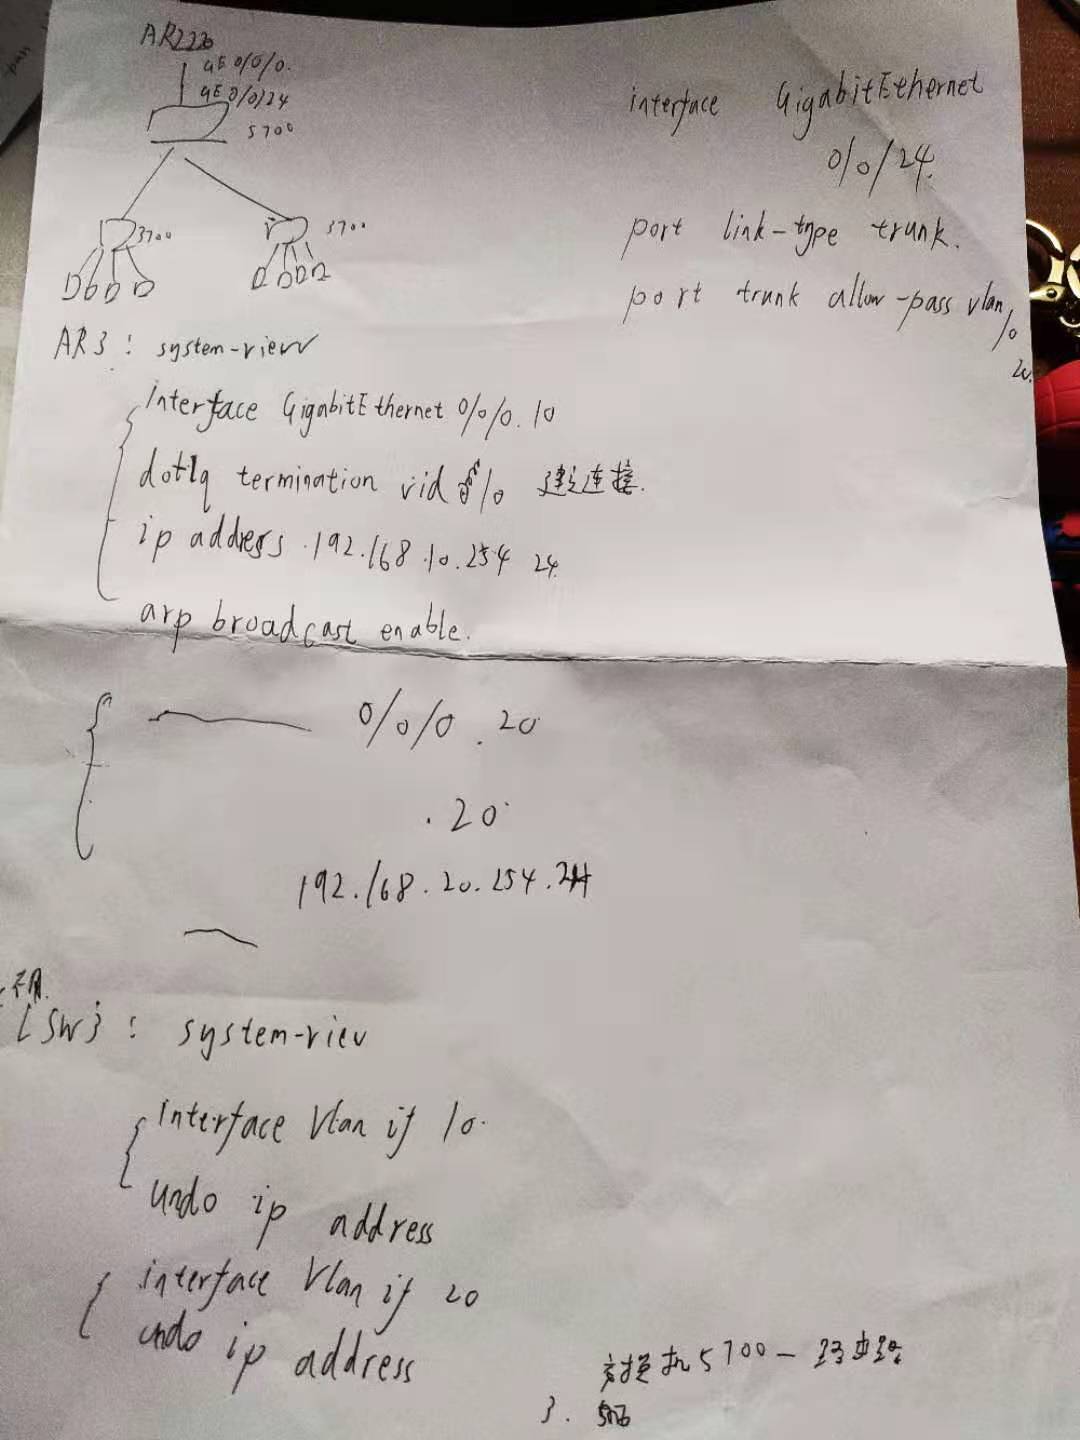 AR2220
GE 0/0/0.
GE 0/0/24
5700
3700
3700
interface GigabitEthernet
0/0/24.
port link-type trunk.
port trunk allow-pass vlan 10
20.
AR3: system-view
interface GigabitEthernet 0/0/0.10
dot1q termination vid 10 建立连接.
ip address 192.168.10.254 24
arp broadcast enable.
0/0/0.20
.20
192.168.20.254.24
不用.
[SW]: system-view
interface Vlan if 10.
undo ip address
interface Vlan if 20
undo ip address
交换机5700—路由器
3.